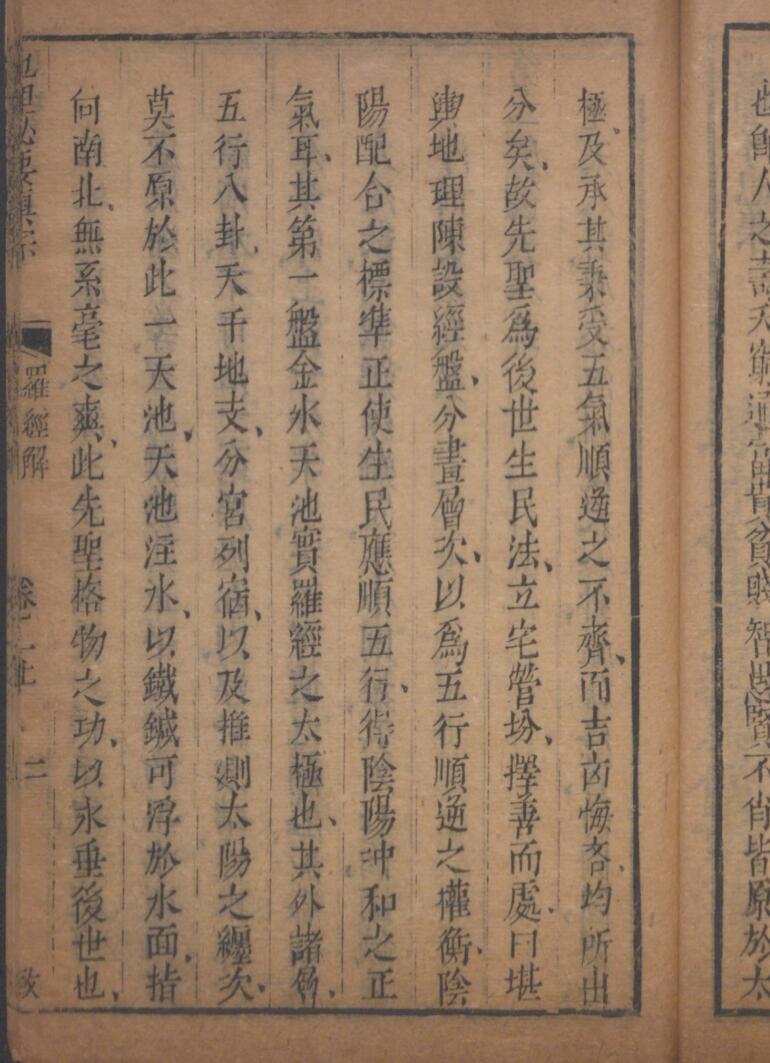 也能人之壽夭窮通富貴貧賤智愚賢不肖皆原於太
極及承其秉受五氣順逆之不齊而吉凶悔吝均所由
分矣故先聖爲後世生民法立宅營坊擇善而處曰堪
輿地理陳設經盤分晝層次以爲五行順逆之權衡陰
陽配合之標準正使生民應順五行得陰陽冲和之正
氣耳其第一盤金水天池實羅經之太極也其外諸層
五行八卦天干地支分宮列宿以及推測太陽之纏次
莫不原於此一天池天池注水以鐵鍼可浮於水面指
向南北無系毫之爽此先聖格物之功以永垂後世也
羅經解
卷一上
二